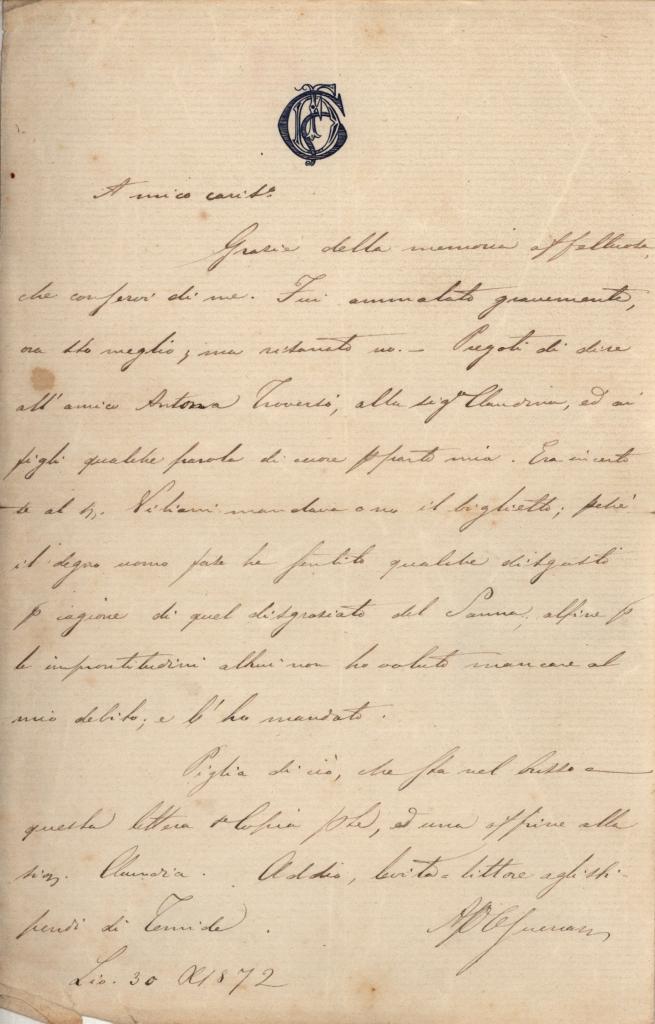 Amico cariss.º
Grazie della memoria affettuosa,
che conservi di me. Fui ammalato gravemente,
ora sto meglio; ma risanato no. — Pregoti di dire
all'amico Antona Traversi, alla sigª Claudina, ed ai
figli qualche parola di cuore p parte mia. Era incerto
se al Sig. Viliani mandava o no il biglietto; pchè
il degno uomo fose ha sentito qualche disgusto
p cagione di quel disgraziato del Sanna; alfine p
le improntitudini altrui non ho voluto mancare al
mio debito; e l'ho mandato.
Piglia di ciò, che sta nel busso a
questa lettera 1ª Copia pte, ed una offrine alla
sig. Claudia. Addio, levita = littore agli sti-
pendi di Temide.
FDGuerrazzi
Liv. 30 X 1872